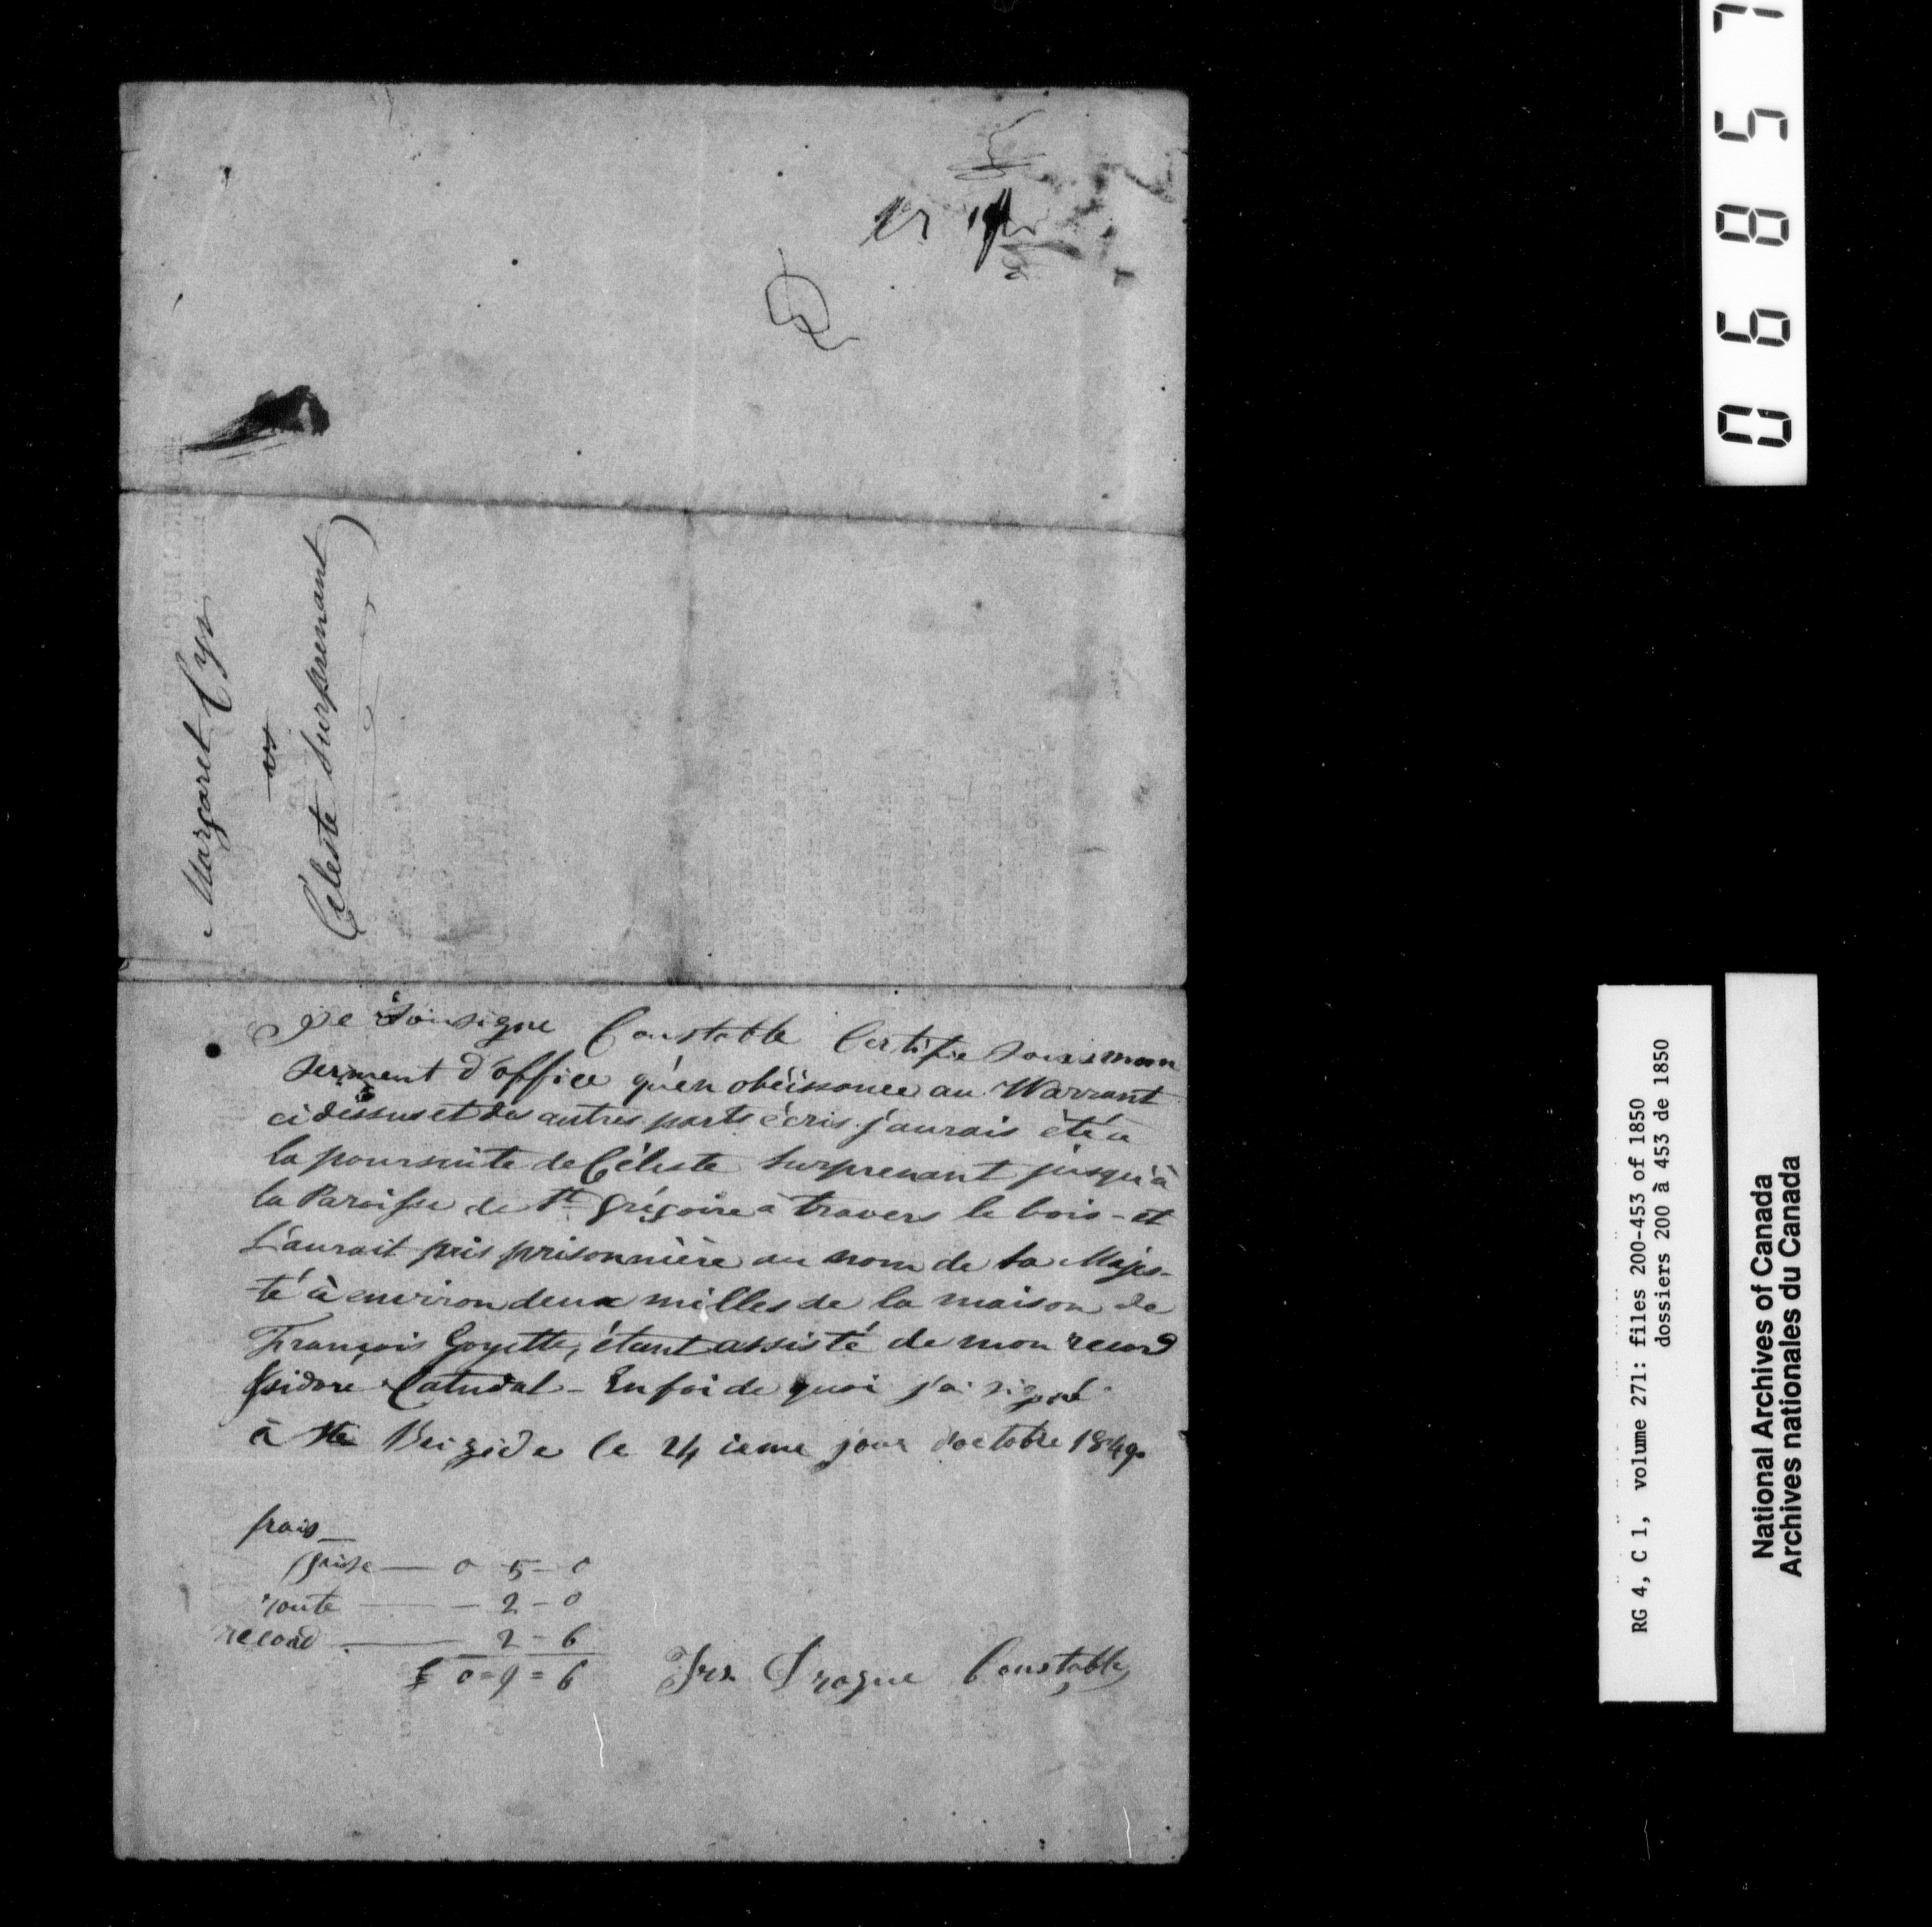 Margaret Cyr
vs
Céleste Surprenant
Je Sousigne Constable Certifie sous mon
serment d'office qu'en obéissance au Warrant
ci dessus et des autres parts écris j'aurais été a
la poursuite de Céleste Surprenant jusqu'à
la Paroisse de St Grégoire à travers le bois - et
L'aurait pris prisonnière au nom de Sa Majes-
té à environ deux milles de la maison de
François Goyette, étant assisté de mon record
Isidore Catudal - En foi de quoi j'ai signé
à Ste Brigide le 24 ieme jour d'octobre 1849.
frais
prise — 0 5 - 0
route — 2 - 0
record — 2 - 6
£ 0 = 9 = 6
Frs. Constable
06857
RG 4, C 1, volume 271: files 200-453 of 1850
dossiers 200 à 453 de 1850
National Archives of Canada
Archives nationales du Canada